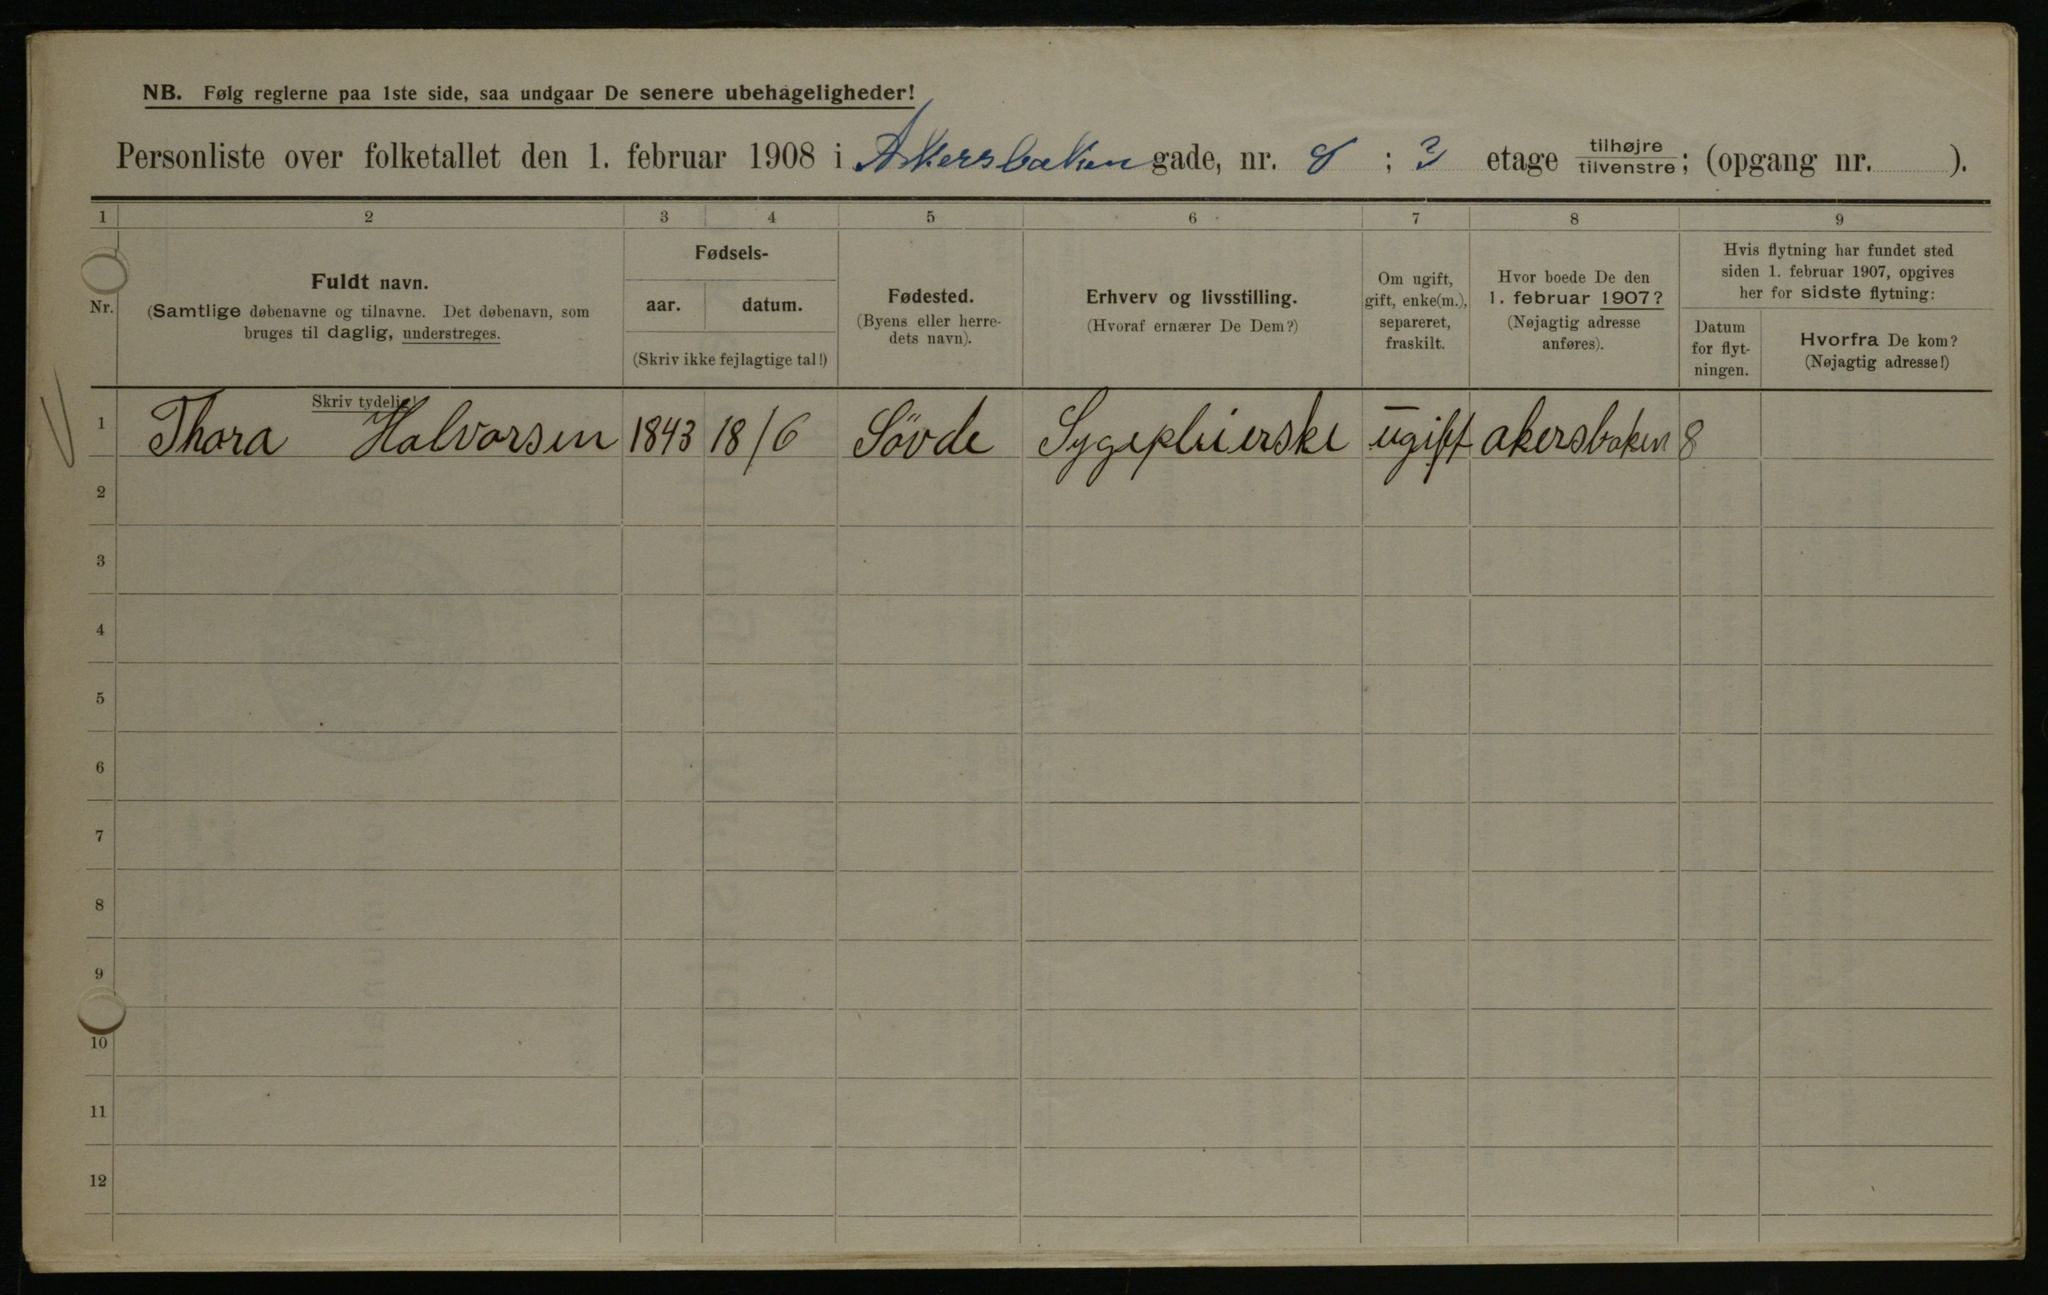 NB. Følg reglerne paa 1ste side, saa undgaar De senere ubehageligheder!
Personliste over folketallet den 1. februar 1908 i Akersbakken gade, nr. 8 ; 3 etage tilhøjre/tilvenstre; (opgang nr. ).
1 2 3 4 5 6 7 8 9
Nr.
Fuldt navn.
(Samtlige døbenavne og tilnavne. Det døbenavn, som
bruges til daglig, understreges.
Skriv tydelig!
Fødsels-
aar. datum.
(Skriv ikke fejlagtige tal!)
Fødested.
(Byens eller herre-
dets navn).
Erhverv og livsstilling.
(Hvoraf ernærer De Dem?)
Om ugift,
gift, enke(m.),
separeret,
fraskilt.
Hvor boede De den
1. februar 1907?
(Nøjagtig adresse
anføres).
Hvis flytning har fundet sted
siden 1. februar 1907, opgives
her for sidste flytning:
Datum
for flyt-
ningen.
Hvorfra De kom?
(Nøjagtig adresse!)
1 Thora Halvorsen 1843 18/6 Søvde Sygepleierske ugift akersbaken 8
2
3
4
5
6
7
8
9
10
11
12